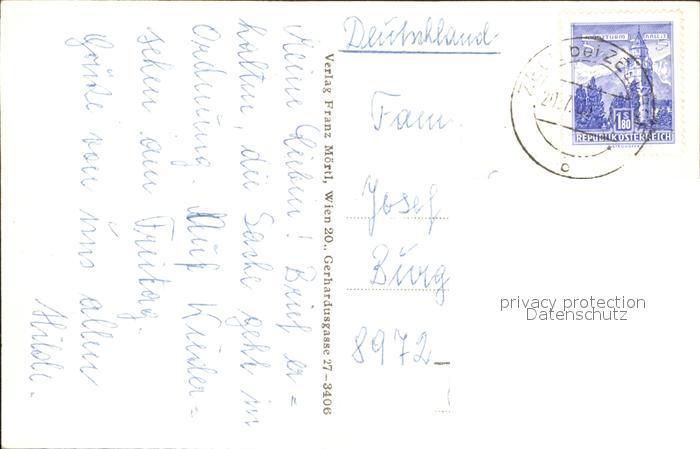 Meine Lieben! Brief er=
halten, die Sache geht in
Ordnung. Auf Wieder=
sehen am Freitag.
Grüße von uns allen
Hilde.
Verlag Franz Mörtl, Wien 20., Gerhardusgasse 27-3406
Deutschland
Fam.
Josef
Burg
8972
privacy protection
Datenschutz
1.80
S
REPUBLIK ÖSTERREICH
bei Zell